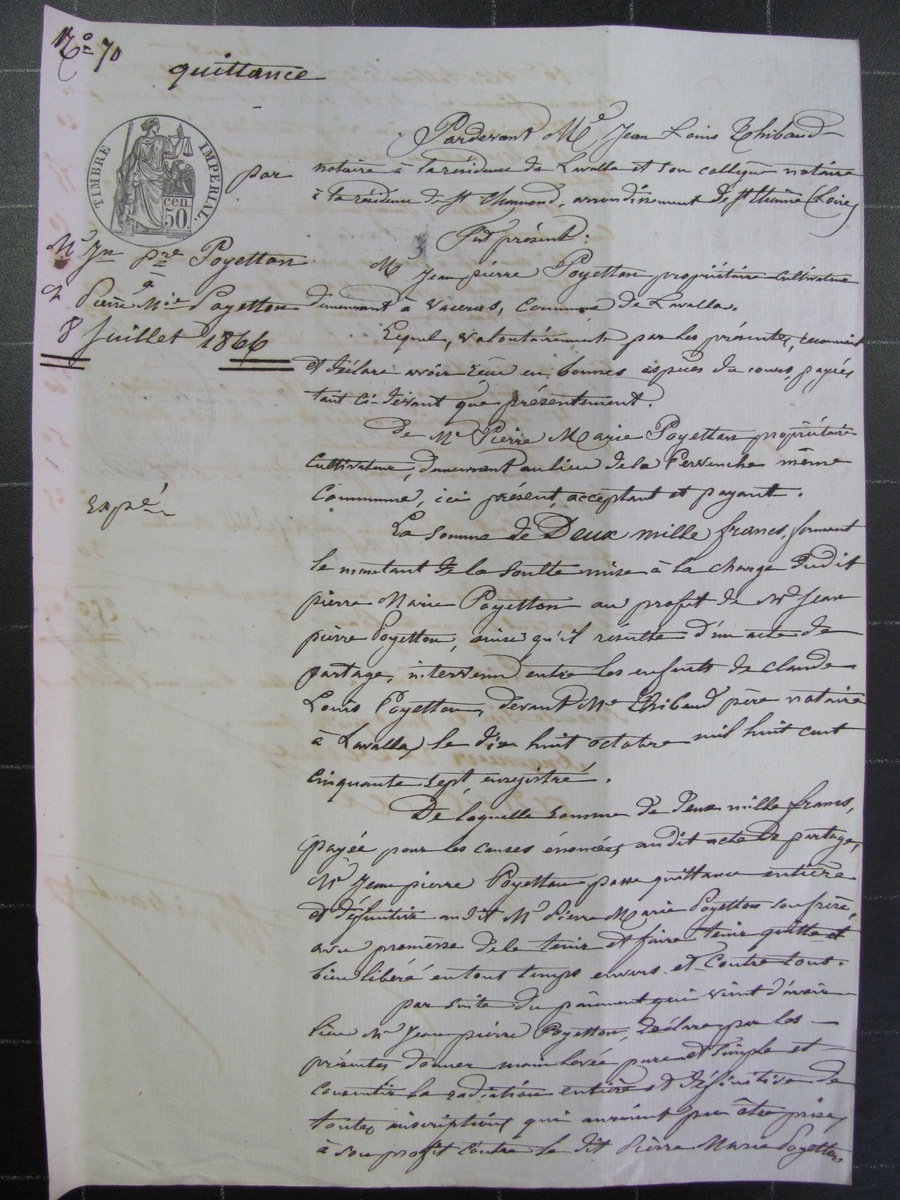 No 70
quittance
TIMBRE IMPERIAL
50 cen
par
Mr Jn Pre Poyetton
à
Pierre Mie Poyetton
8 Juillet 1866
Expé
Pardevant Me Jean Louis Thibaud
notaire à la résidence de Lavalla et son collègue notaire
à la résidence de St Chamond, arrondissement de St Etienne (Loire)
Fut présent :
Mr Jean pierre Poyetton propriétaire cultivateur
demeurant à Commune de Lavalla.
Lequel, volontairement par les présentes, reconnait
et déclare avoir reçu en bonnes espèces du cours payées
tant ci-devant que présentement.
De Mr Pierre Marie Poyetton propriétaire
Cultivateur, demeurant au lieu de la Pervenche même
Commune, ici présent, acceptant et payant.
La Somme de Deux mille francs, formant
le montant de la Soulte mise à la charge dudit
pierre Marie Poyetton au profit de Mr Jean
pierre Poyetton, ainsi qu'il résulte d'un acte de
partage, intervenu entre les enfants de Claude
Louis Poyetton, devant Me Thibaud père notaire
à Lavalla, le dix huit octobre mil huit cent
cinquante sept, enregistré.
De laquelle somme de Deux mille francs,
payée pour les causes énoncées audit acte de partage,
Mr Jean pierre Poyetton passe quittance entière
et définitive audit Mr Pierre Marie Poyetton son frère,
avec promesse de le tenir et faire tenir quitte et
bien libéré en tout temps envers et Contre tout.
par suite du paiment qui vient d'avoir
lieu Mr Jean pierre Poyetton, déclare par les
présentes donner main levée pure et simple et
consentir la radiation entière et définitive de
toutes inscriptions qui auraient pu être prises
à son profit Contre le dit Pierre Marie Poyetton